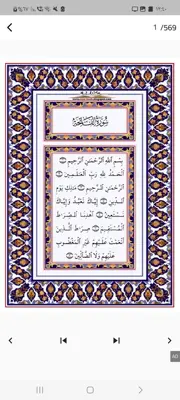 1 /569
سُورَةُ الفَاتِحَةِ
بِسْمِ ٱللَّهِ ٱلرَّحْمَٰنِ ٱلرَّحِيمِ
ٱلْحَمْدُ لِلَّهِ رَبِّ ٱلْعَٰلَمِينَ
ٱلرَّحْمَٰنِ ٱلرَّحِيمِ مَٰلِكِ يَوْمِ
ٱلدِّينِ إِيَّاكَ نَعْبُدُ وَإِيَّاكَ
نَسْتَعِينُ ٱهْدِنَا ٱلصِّرَٰطَ
ٱلْمُسْتَقِيمَ صِرَٰطَ ٱلَّذِينَ
أَنْعَمْتَ عَلَيْهِمْ غَيْرِ ٱلْمَغْضُوبِ
عَلَيْهِمْ وَلَا ٱلضَّآلِّينَ
60